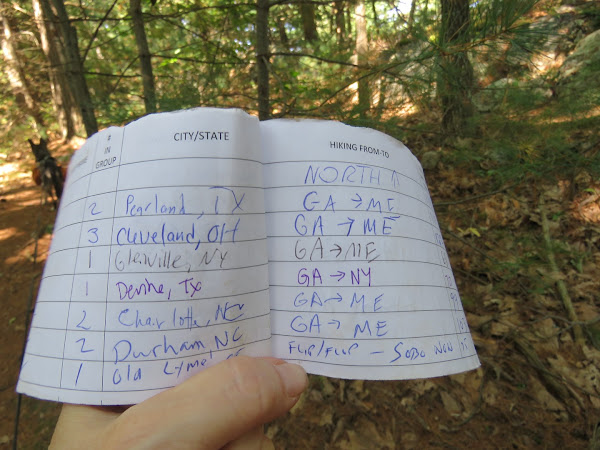 # IN GROUP CITY/STATE HIKING FROM-TO
NORTH
2 Pearland, TX GA → ME
3 Cleveland, OH GA → ME
1 Glenville, NY GA → ME
1 Devine, TX GA → NY
2 Charlotte, NC GA → ME
2 Durham NC GA → ME
1 Old Lyme FLIP/FLOP - SOBO NOW